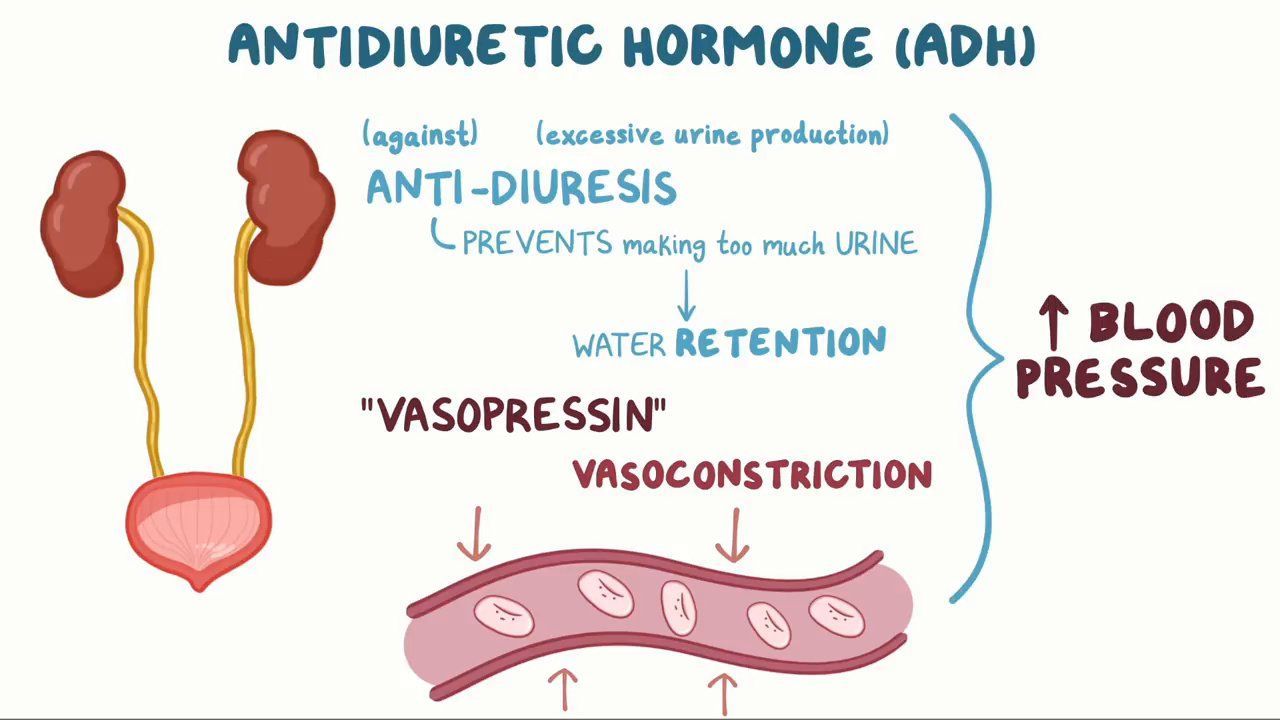 ANTIDIURETIC HORMONE (ADH)
(against) (excessive urine production)
ANTI-DIURESIS
PREVENTS making too much URINE
WATER RETENTION
"VASOPRESSIN"
VASOCONSTRICTION
↑ BLOOD
PRESSURE